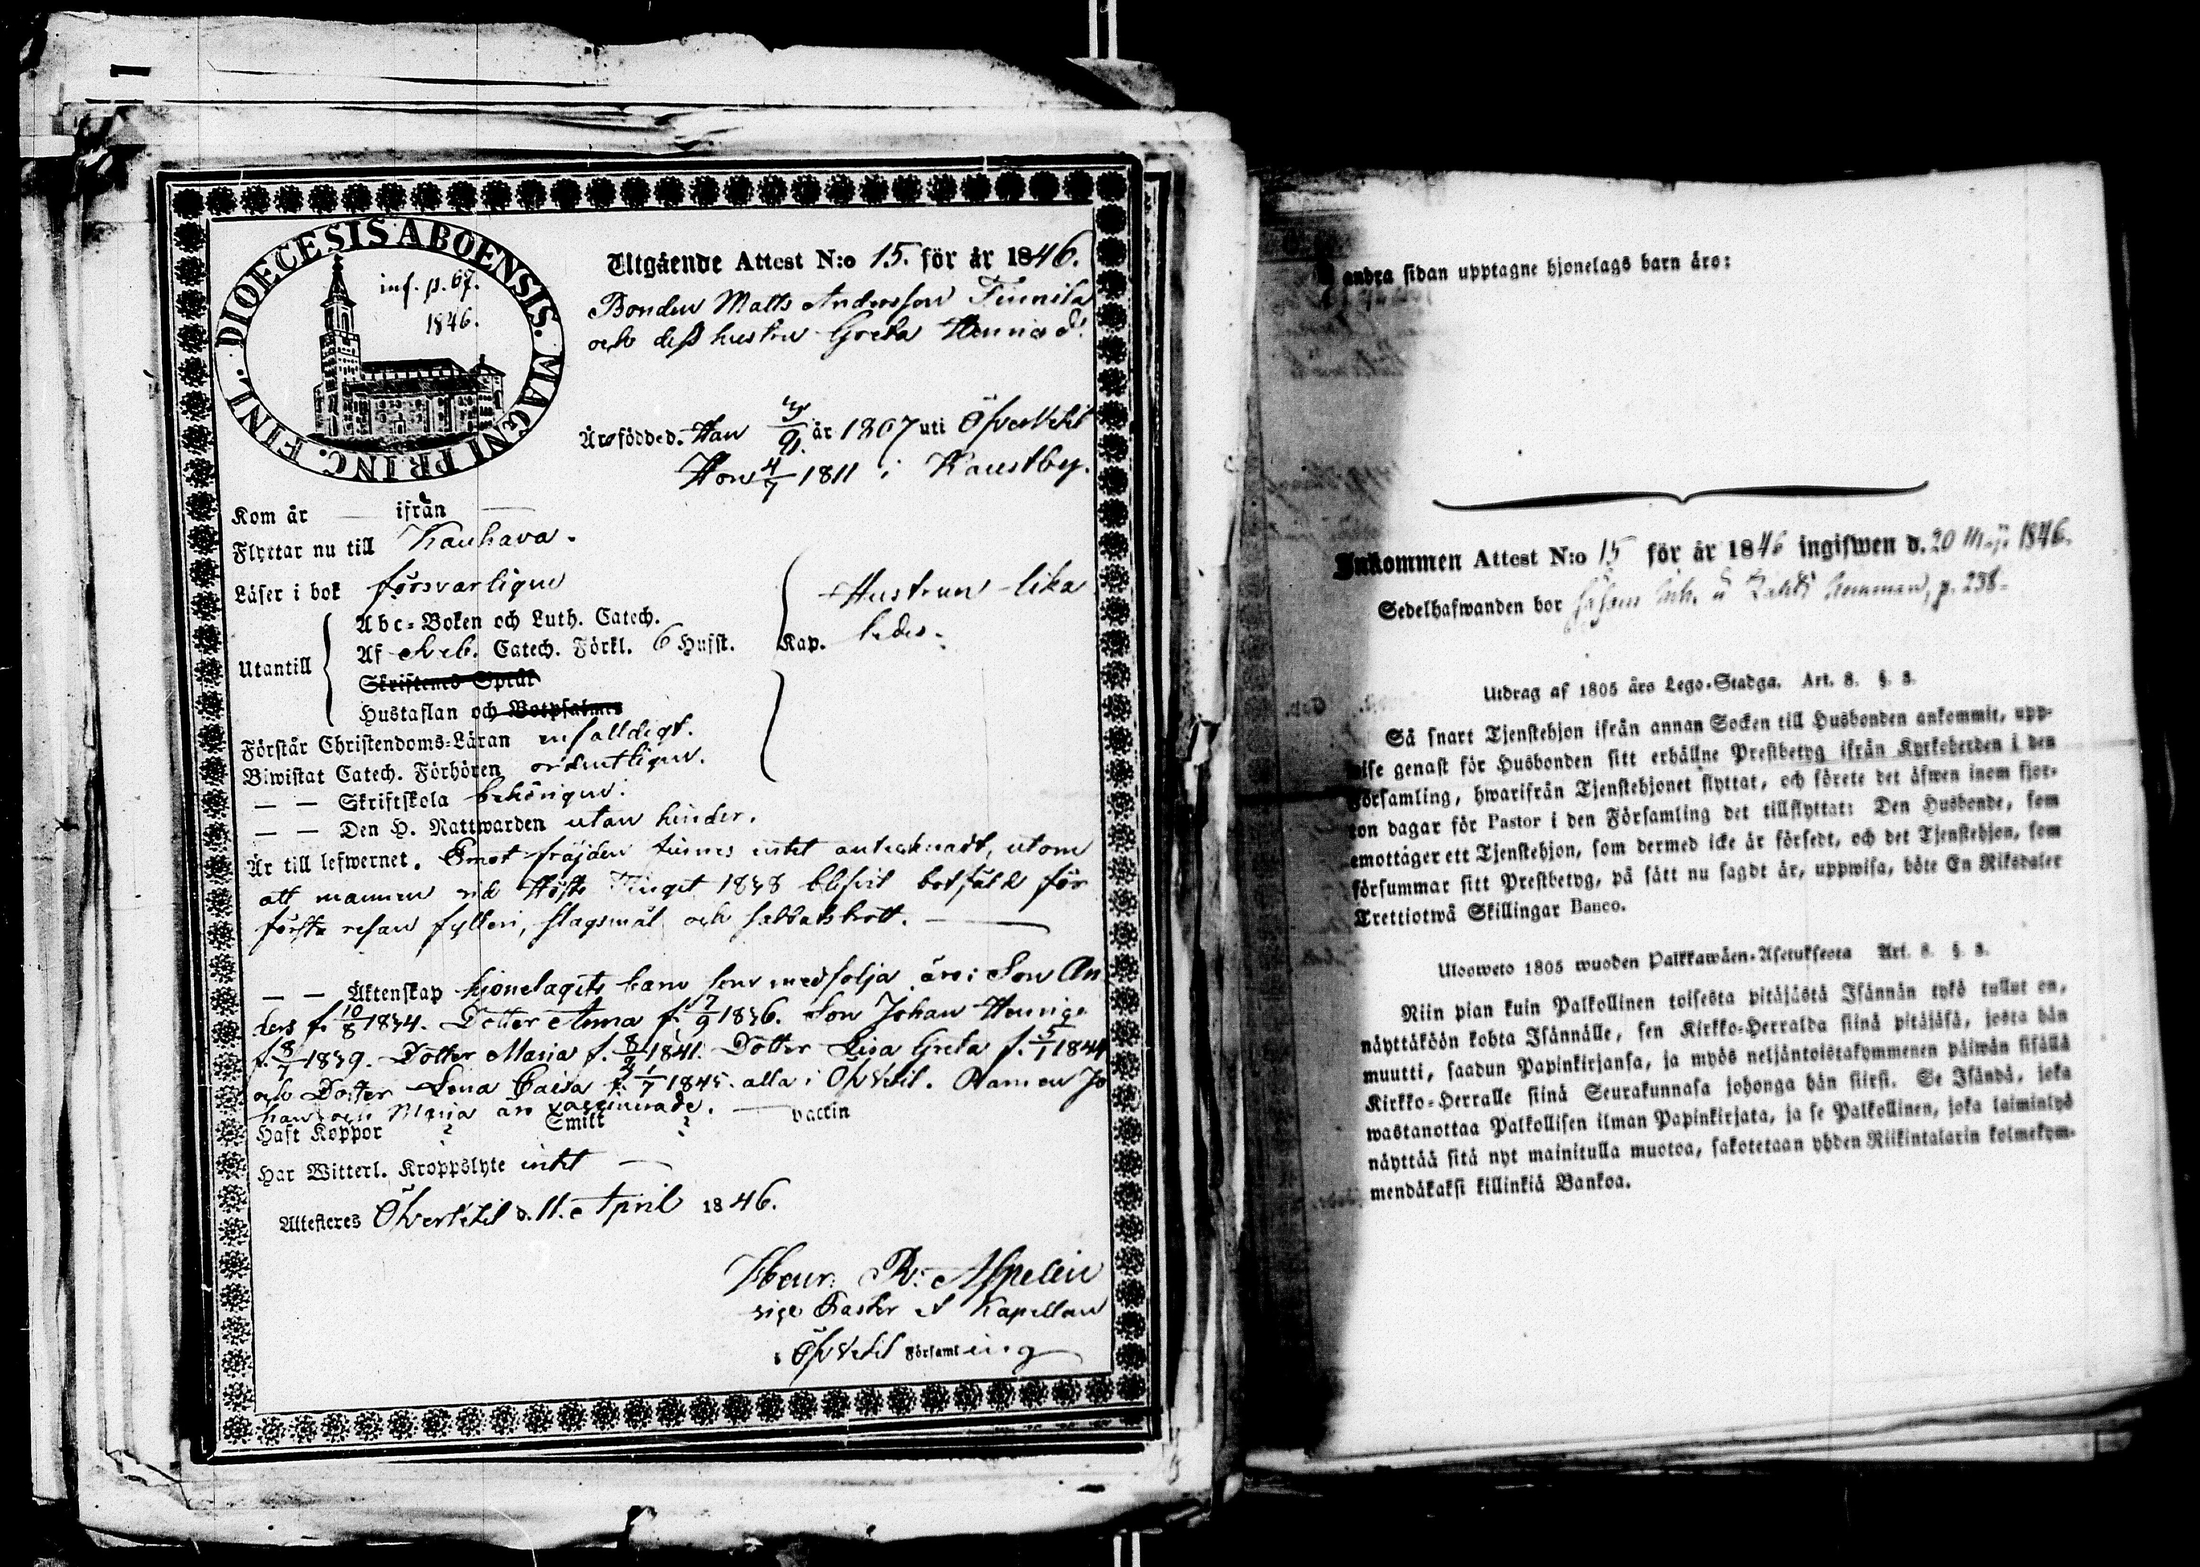 DIOECESIS ABOENSIS. MAGNI PRINC. FINL.
inf. p. 67.
1846.
Utgående Attest N:o 15. för år 1846.
Bonden Matts Andersson Finnila
och dess hustru Greta Hennicd:r
Äro födde d. Han 3/9 år 1807 uti Öfvervetil
Hon 4/7 1811 i Kaustby.
Kom år — ifrån —
Flyttar nu till Kauhava.
Läser i bok försvarligen
Utantill
Abc-Boken och Luth. Catech.
Af Sveb. Catech. Förkl. 6 Hufst. Kap.
Skriftenes Språk
Hustaflan och Botpsalmer
Hustrun lika
ledes.
Förstår Christendoms-Läran enfalldigt.
Biwistat Catech. Förhören ordentligen.
— — Skriftskola behörigen.
— — Den H. Nattwarden utan hinder.
Är till lefwernet. Emot fräjden finnes intet antecknadt, utom
att mannen vid Höste Tinget 1838 blifvit botfäld för
första resan fylleri, slagsmål och sabbatsbrott. —
— — Äktenskap hjonelagets barn som medfölja äro: Son An
ders f. 10/8 1834. Dotter Anna f. 7/9 1836. Son Johan Hennic
f. 8/7 1839. Dotter Maria f. 8/2 1841. Dotter Lisa Greta f. 5/1 1844
och Dotter Lena Caisa f. 1/7 1845. alla i Öfvetil. Barnen Jo
han och Maria äro vaccinerade. —
Haft Koppor ? Smitt ? Vaccin
Har Witterl. Kroppslyte intet —
Attesteres Öfvervetil d. 11. April 1846.
Henr. R: Aspelin
vice Pastor & Kapellan
i Öfvetil Församling
andra sidan upptagne hjonelags barn äro:
Inkommen Attest N:o 15 för år 1846 ingifwen d. 20 Maji 1846.
Sedelhafwanden bor p. 238.
Utdrag af 1805 års Lego-Stadga. Art. 8. §. 3.
Så snart Tjenstehjon ifrån annan Socken till Husbonden ankommit, upp-
wise genast för Husbonden sitt erhållne Prestbetyg ifrån Kyrkoherden i den
Församling, hwarifrån Tjenstehjonet flyttat, och förete det äfwen inom fjor-
ton dagar för Pastor i den Församling det tillflyttat: Den Husbonde, som
emottager ett Tjenstehjon, som dermed icke är försedt, och det Tjenstehjon, som
försummar sitt Prestbetyg, på sätt nu sagdt är, uppwisa, böte En Riksdaler
Trettiotwå Skillingar Banco.
Ulosweto 1805 wuoden Palkkawäen-Asetuksesta Art. 8. §. 3.
Niin pian kuin Palkollinen toisesta pitäjästä Isännän tykö tullut on,
näyttäköön kohta Isännälle, sen Kirkko-Herralda siinä pitäjäsä, josta hän
muutti, saadun Papinkirjansa, ja myös neljäntoistakymmenen päiwän sisällä
Kirkko-Herralle siinä Seurakunnasa johonga hän siirsi. Se Isändä, joka
wastanottaa Palkollisen ilman Papinkirjata, ja se Palkollinen, joka laiminlyö
näyttää sitä nyt mainitulla muotoa, sakotetaan yhden Riikintalarin kolmekym-
mendäkaksi killinkiä Bankoa.